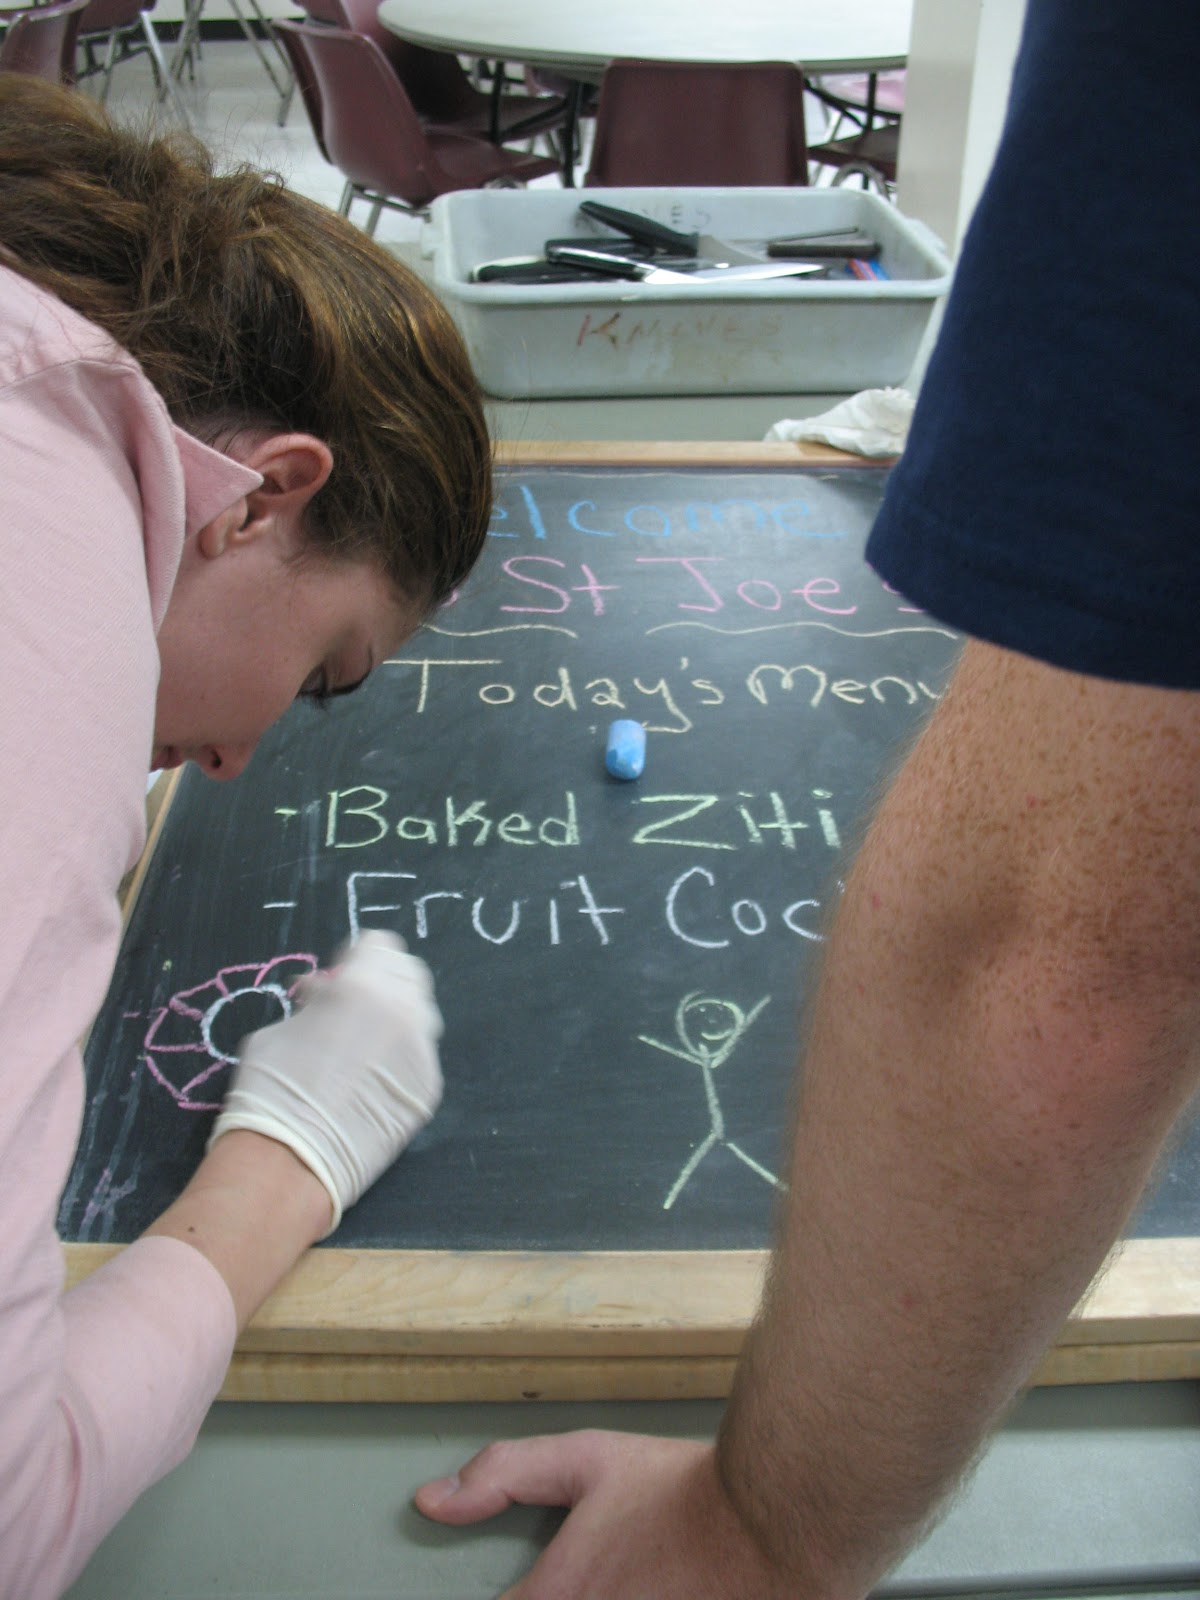 KNIVES
elcome
St Joe's
Today's Menu
- Baked Ziti
- Fruit Coc